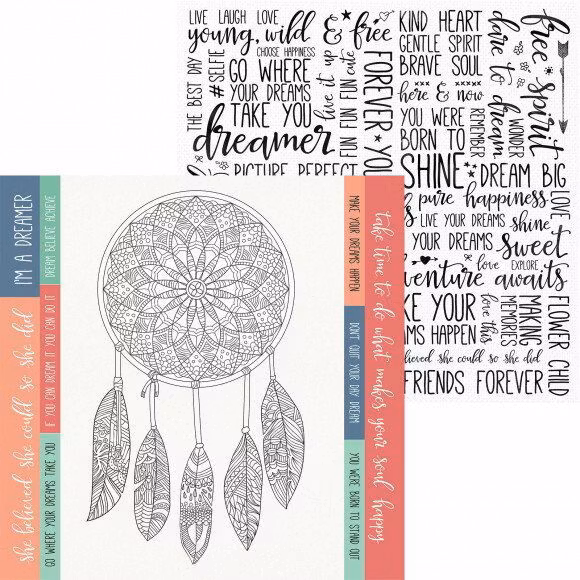 LIVE LAUGH LOVE
young, wild & free
CHOOSE HAPPINESS
THE BEST DAY
#SELFIE
GO WHERE
YOUR DREAMS
TAKE YOU
live it up
FUN FUN FUN FUN
cute
dreamer
FOREVER YO
PICTURE PERFECT
KIND HEART
GENTLE SPIRIT
BRAVE SOUL
here & now
YOU WERE
BORN TO
SHINE
dare to dream
REMEMBER
WONDER
free spirit
DREAM BIG
pure happiness
LIVE YOUR DREAMS
shine
LOVE
YOUR DREAMS
sweet
love
EXPLORE
venture awaits
KE YOUR
AMS HAPPEN
love this
MAKING
MEMORIES
FLOWER CHILD
elieved she could so she did
FRIENDS FOREVER
I'M A DREAMER
she believed she could so she did
DREAM BELIEVE ACHIEVE
IF YOU CAN DREAM IT YOU CAN DO IT
GO WHERE YOUR DREAMS TAKE YOU
MAKE YOUR DREAMS HAPPEN
DON'T QUIT YOUR DAY DREAM
YOU WERE BORN TO STAND OUT
take time to do what makes your soul happy